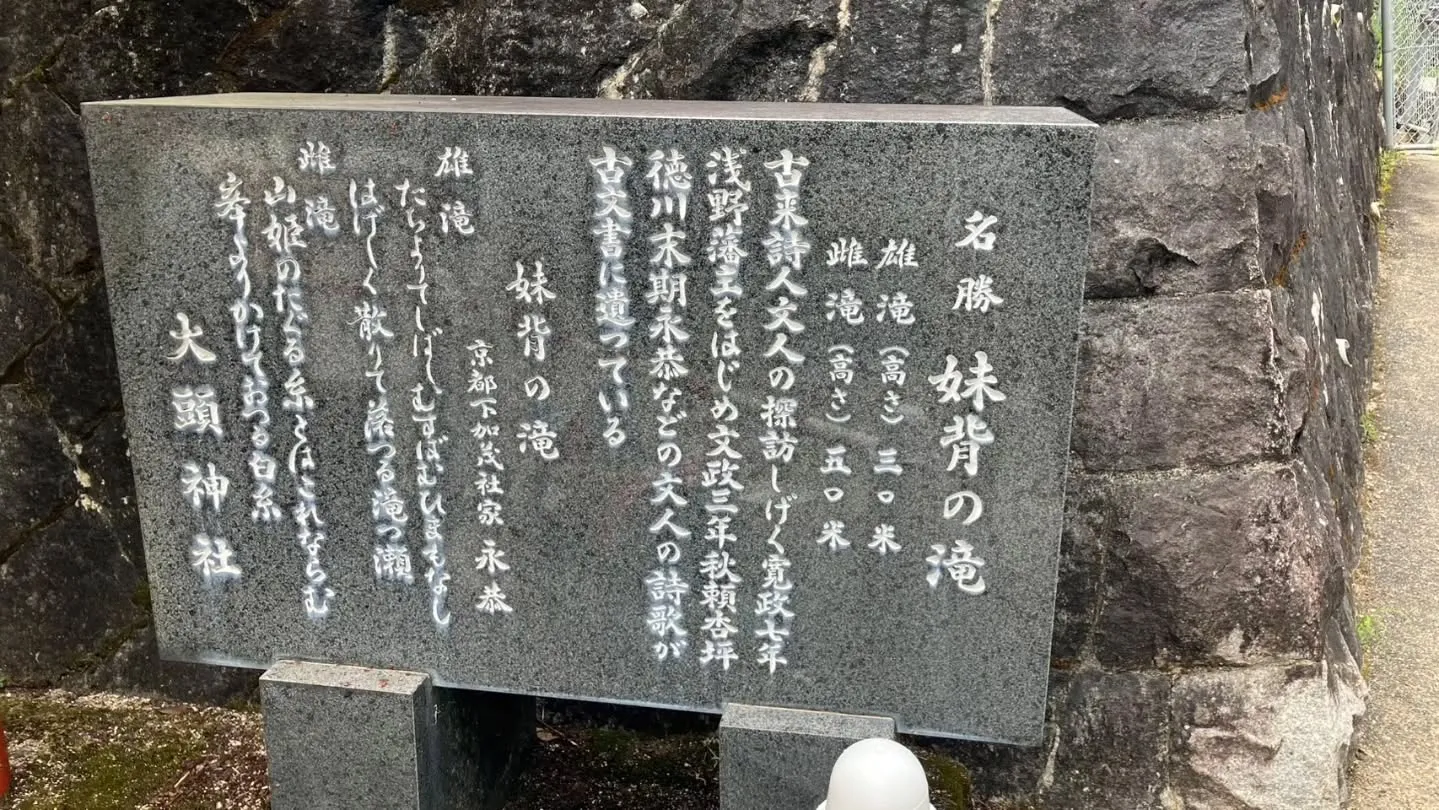 名勝 妹背の滝
雄滝（高さ）三〇米
雌滝（高さ）五〇米
古来詩人文人の探訪しげく寛政七年
浅野藩主をはじめ文政三年秋頼杏坪
徳川末期永恭などの文人の詩歌が
古文書に遺っている
妹背の滝
京都下加茂社家 永恭
雄滝
たちよりてしばしむすばむひまもなし
はげしく散りて落つる滝つ瀬
雌滝
山姫のたぐる糸とはこれならむ
峯よりかけておつる白糸
大頭神社